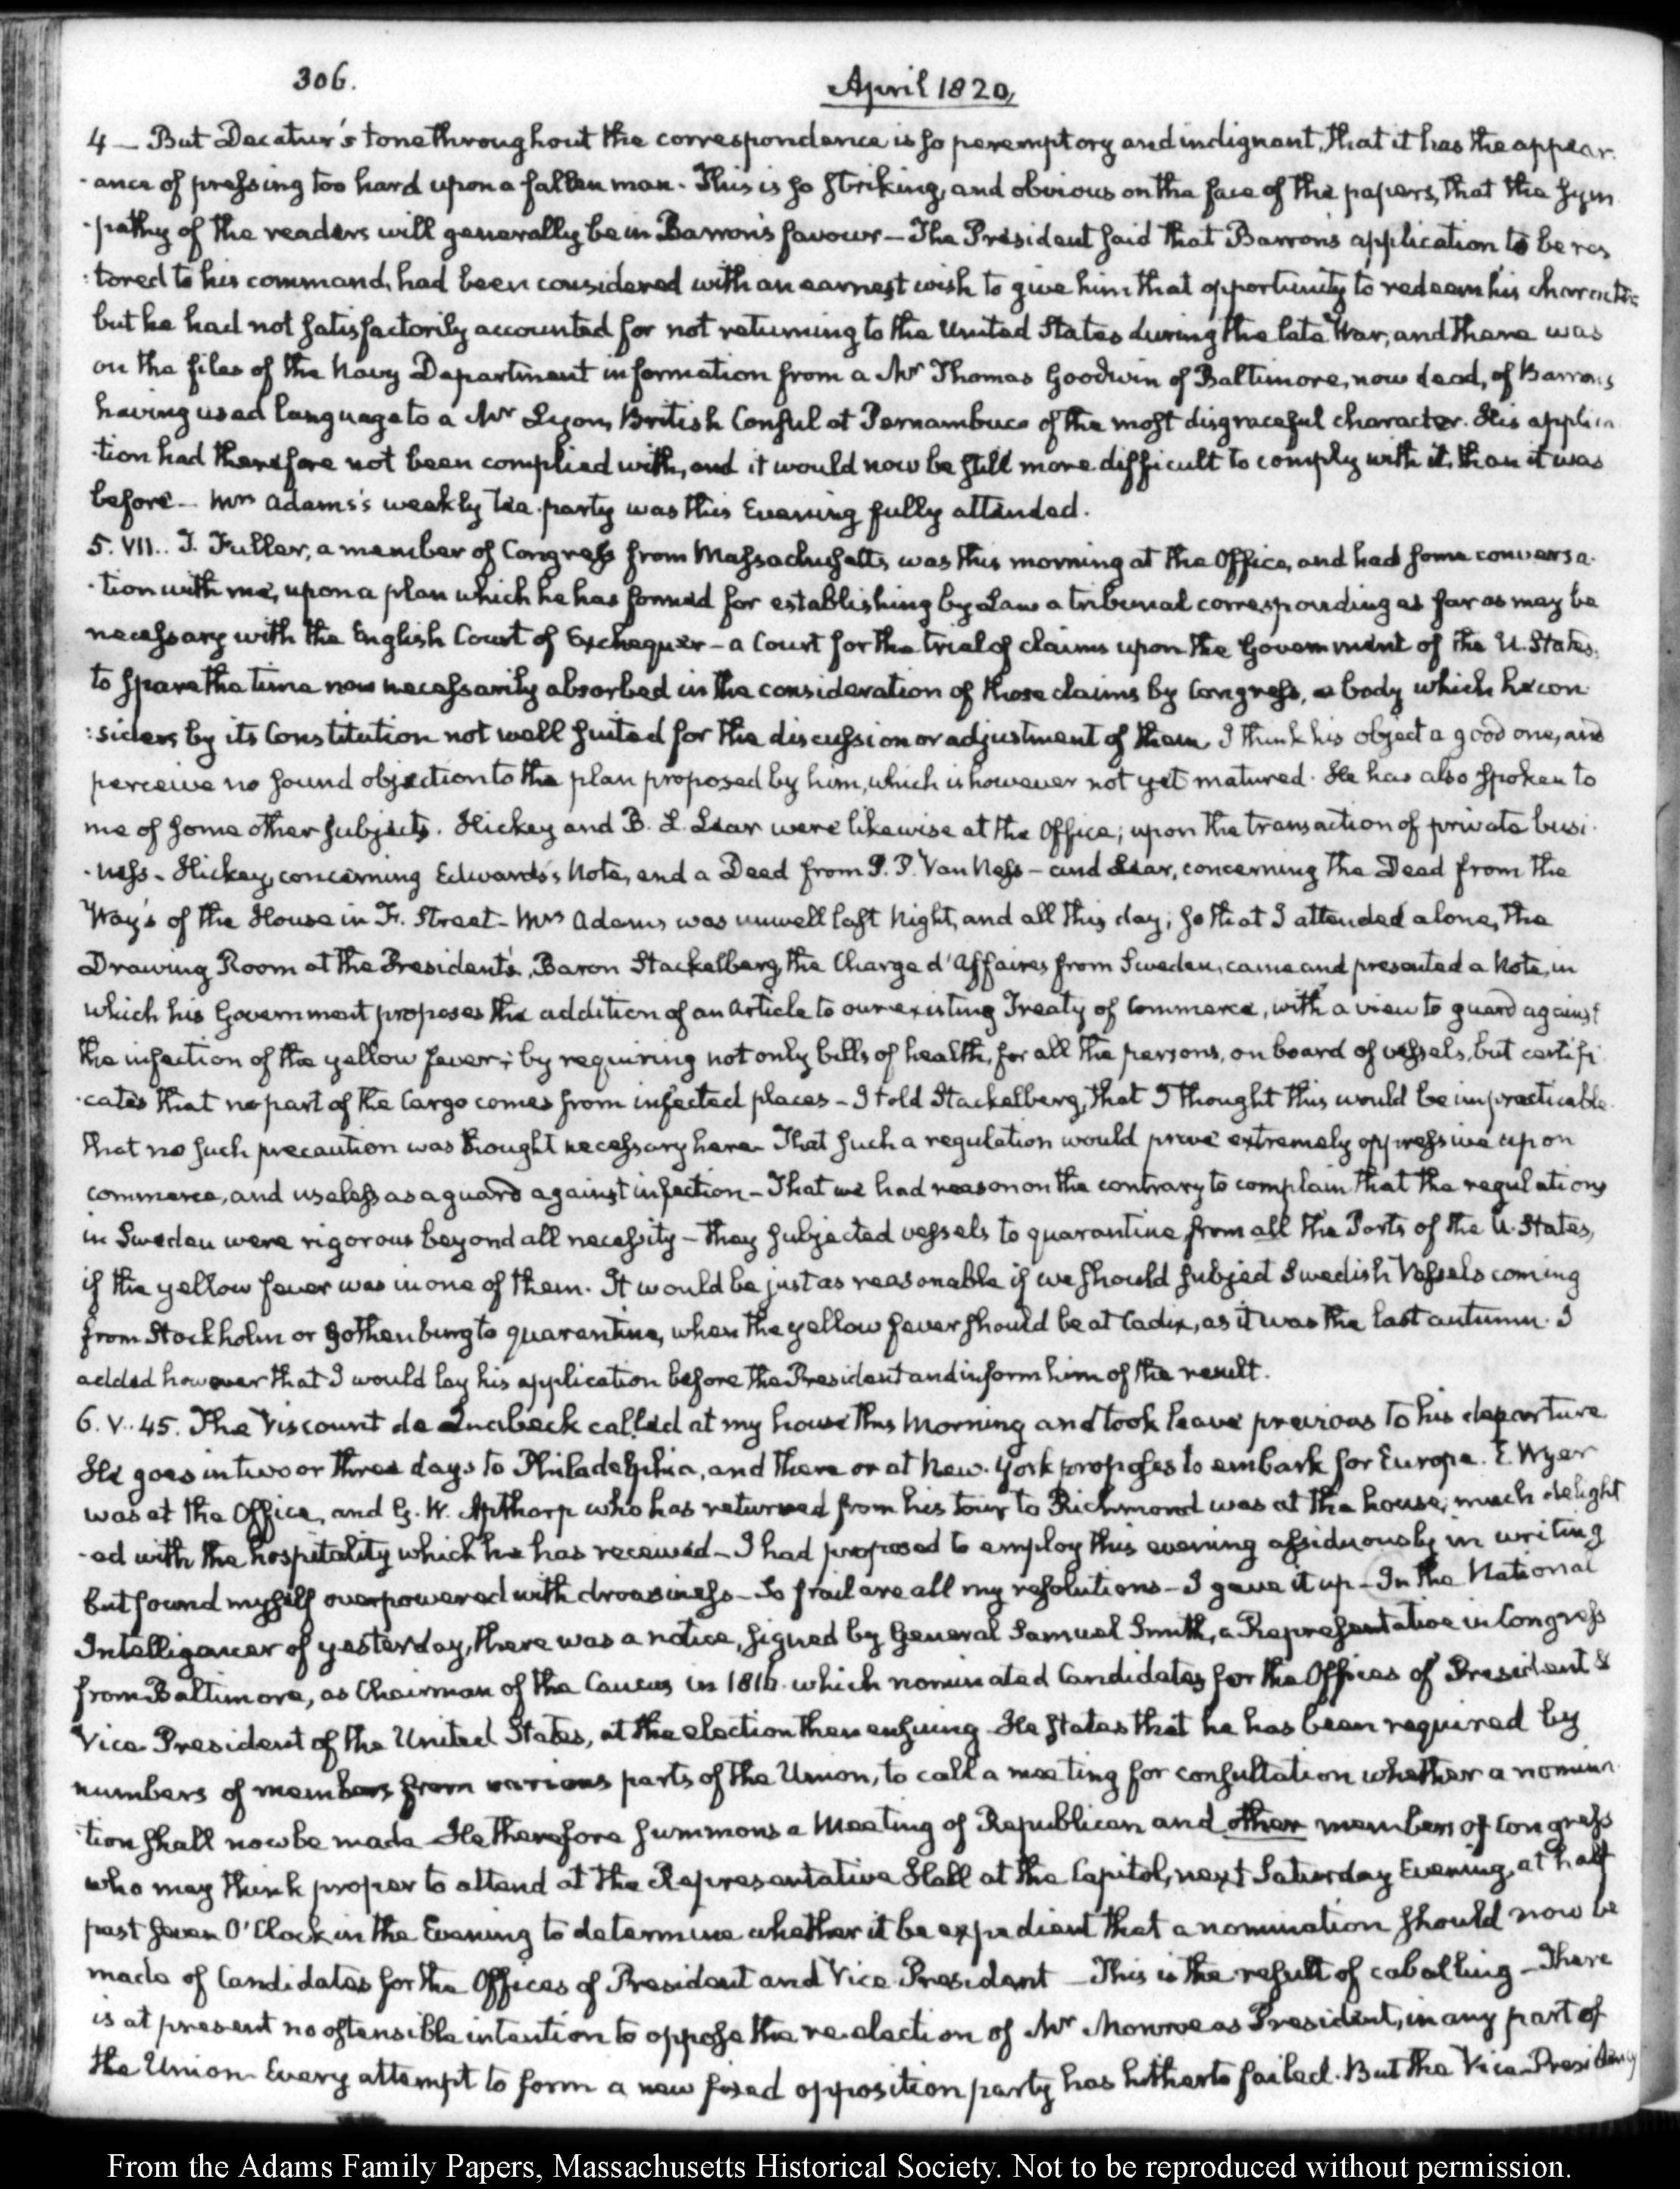 306.
April 1820,
4 — But Decatur's tone throughout the correspondence is so peremptory and indignant, that it has the appear-
-ance of pressing too hard upon a fallen man. This is so striking, and obvious on the face of the papers, that the sym
-pathy of the readers will generally be in Barron's favour — The President said that Barron's application to be res
-tored to his command, had been considered with an earnest wish to give him that opportunity to redeem his character
but he had not satisfactorily accounted for not returning to the United States during the late War; and there was
on the files of the Navy Department information from a Mr Thomas Goodwin of Baltimore, now dead, of Barron's
having used language to a Mr Lyon, British Consul at Pernambuco of the most disgraceful character. His applica
-tion had therefore not been complied with, and it would now be still more difficult to comply with it, than it was
before — Mrs Adams's weekly tea-party was this Evening fully attended.
5. VII.. T. Fuller, a member of Congress from Massachusetts was this morning at the Office, and had some conversa-
-tion with me, upon a plan which he has formed for establishing by Law a tribunal corresponding as far as may be
necessary with the English Court of Exchequer — a Court for the trial of claims upon the Government of the U. States,
to spare the time now necessarily absorbed in the consideration of those claims by Congress, a body which he con
:siders by its Constitution not well suited for the discussion or adjustment of them. I think his object a good one, and
perceive no sound objection to the plan proposed by him, which is however not yet matured. He has also spoken to
me of some other subjects. Hickey and B. L. Lear were likewise at the Office; upon the transaction of private busi-
-ness — Hickey, concerning Edwards's Note, and a Deed from J. P. Van Ness — and Lear, concerning the Deed from the
Way's of the House in F. Street — Mrs Adams was unwell last Night, and all this day; so that I attended alone, the
Drawing Room at the President's. Baron Stackelberg, the Charge d'Affaires from Sweden, came and presented a Note, in
which his Government proposes the addition of an Article to our existing Treaty of Commerce, with a view to guard against
the infection of the yellow fever; by requiring not only bills of health, for all the persons, on board of vessels, but certifi
-cates that no part of the Cargo comes from infected places — I told Stackelberg, that I thought this would be impracticable.
that no such precaution was thought necessary here — That such a regulation would prove extremely oppressive upon
commerce, and useless as a guard against infection — That we had reason on the contrary to complain that the regulations
in Sweden were rigorous beyond all necessity — they subjected vessels to quarantine from all the Ports of the U. States,
if the yellow fever was in one of them. It would be just as reasonable if we should subject Swedish Vessels coming
from Stockholm or Gothenburg to quarantine, when the yellow fever should be at Cadix, as it was the last autumn. I
added however that I would lay his application before the President and inform him of the result.
6. V.. 45. The Viscount de Quabeck called at my house this Morning and took leave previous to his departure.
He goes in two or three days to Philadelphia, and there or at New-York proposes to embark for Europe. E. Wyer
was at the Office, and G. W. Apthorp who has returned from his tour to Richmond was at the house; much delight
-ed with the hospitality which he has received — I had proposed to employ this evening assiduously in writing
but found myself overpowered with drowsiness — So frail are all my resolutions — I gave it up — In the National
Intelligencer of yesterday, there was a notice, signed by General Samuel Smith, a Representative in Congress
from Baltimore, as Chairman of the Caucus in 1816. which nominated Candidates for the Offices of President &
Vice President of the United States, at the election then ensuing — He states that he has been required by
numbers of members from various parts of the Union, to call a meeting for consultation whether a nomina
-tion shall now be made — He therefore summons a Meeting of Republican and other members of Congress
who may think proper to attend at the Representative Hall at the Capitol, next Saturday Evening, at half
past seven O'Clock in the Evening to determine whether it be expedient that a nomination should now be
made of Candidates for the Offices of President and Vice President — This is the result of caballing — There
is at present no ostensible intention to oppose the re-election of Mr Monroe as President, in any part of
the Union — Every attempt to form a new fixed opposition party has hitherto failed. But the Vice-Presidency
From the Adams Family Papers, Massachusetts Historical Society. Not to be reproduced without permission.